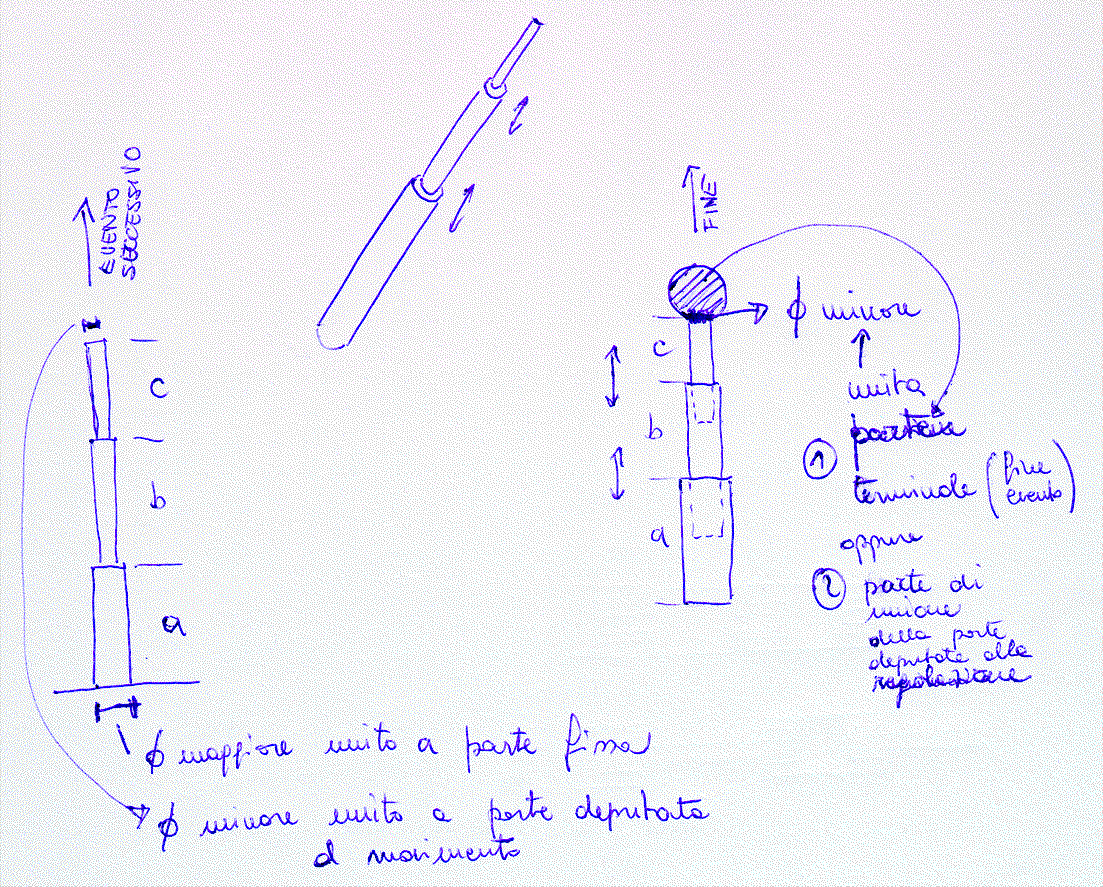 EVENTO
SUCCESSIVO
c
b
a
FINE
ϕ minore
unita
c
b
a
① parte
terminale (fine
evento)
oppure
② parte di
unione
della parte
deputata alla
regolazione
ϕ maggiore unito a parte fissa
ϕ minore unito a parte deputata
al movimento